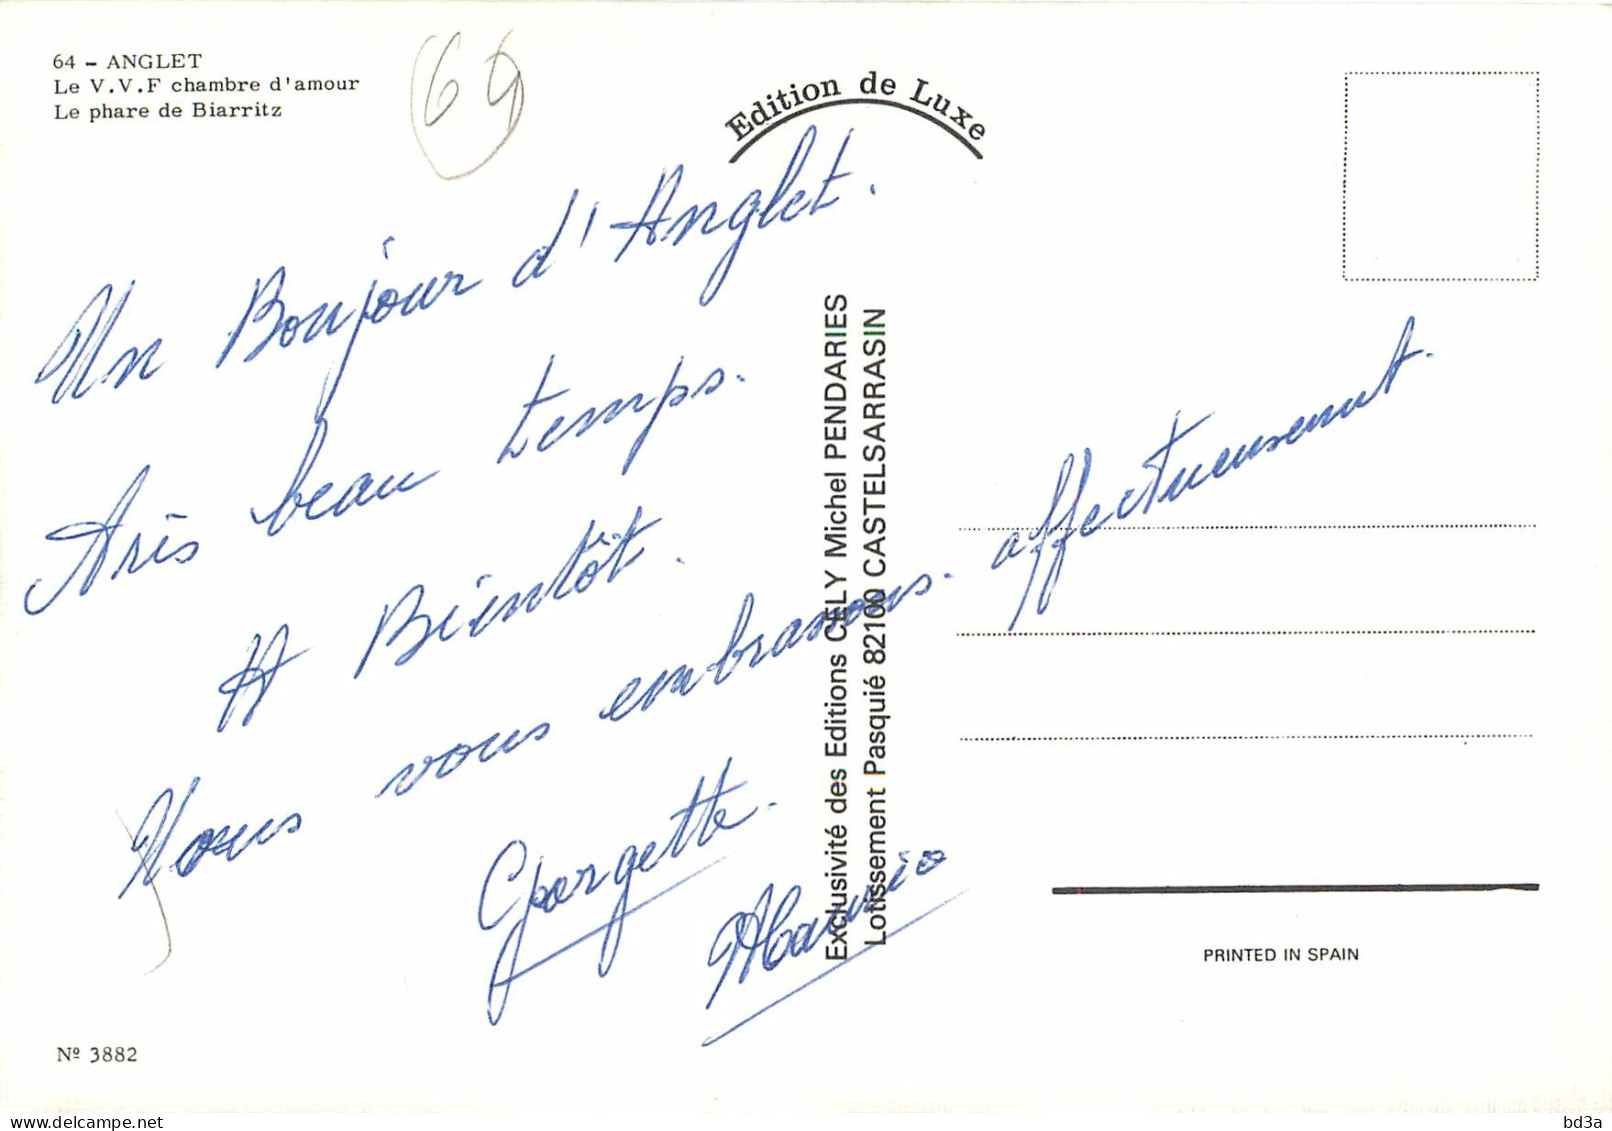 64 - ANGLET
Le V.V.F chambre d'amour
Le phare de Biarritz
64
Edition de Luxe
Un Bonjour d'Anglet.
Très beau temps.
A Bientôt.
Nous vous embrassons. affectueusement.
Georgette.
Exclusivité des Editions CELY Michel PENDARIES
Lotissement Pasquié 82100 CASTELSARRASIN
PRINTED IN SPAIN
Nº 3882
delcampe.net
bd3a